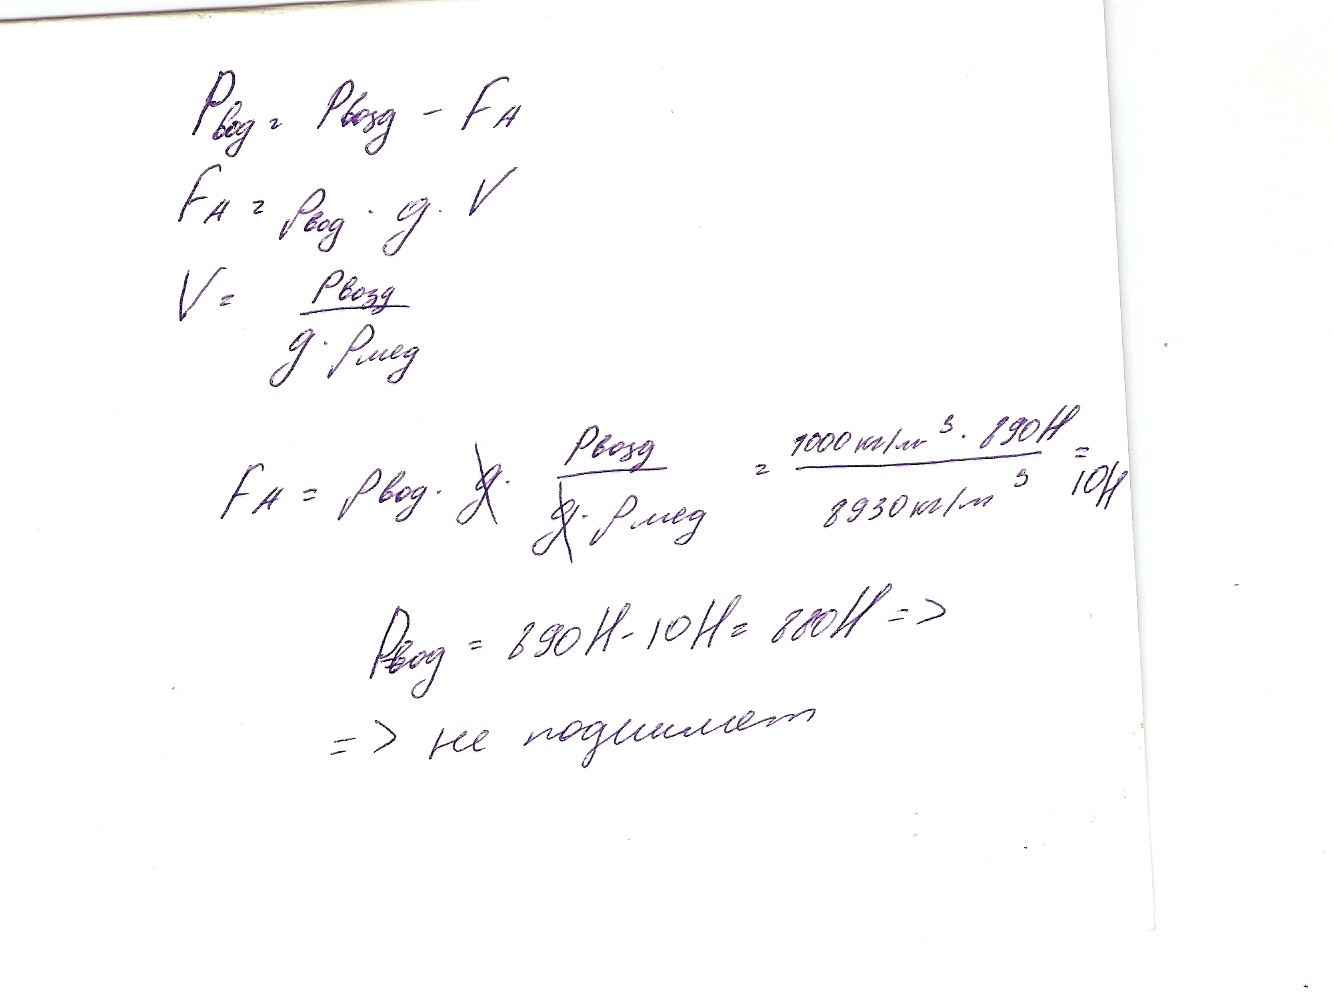 Pвод = Pвозд - FA
FA = ρвод · g · V
V = Pвозд / g · ρмед
FA = ρвод · g · Pвозд / g · ρмед = 1000 кг/м³ · 890Н / 8930 кг/м³ = 10Н
Pвод = 890Н - 10Н = 880Н =>
=> не поднимет